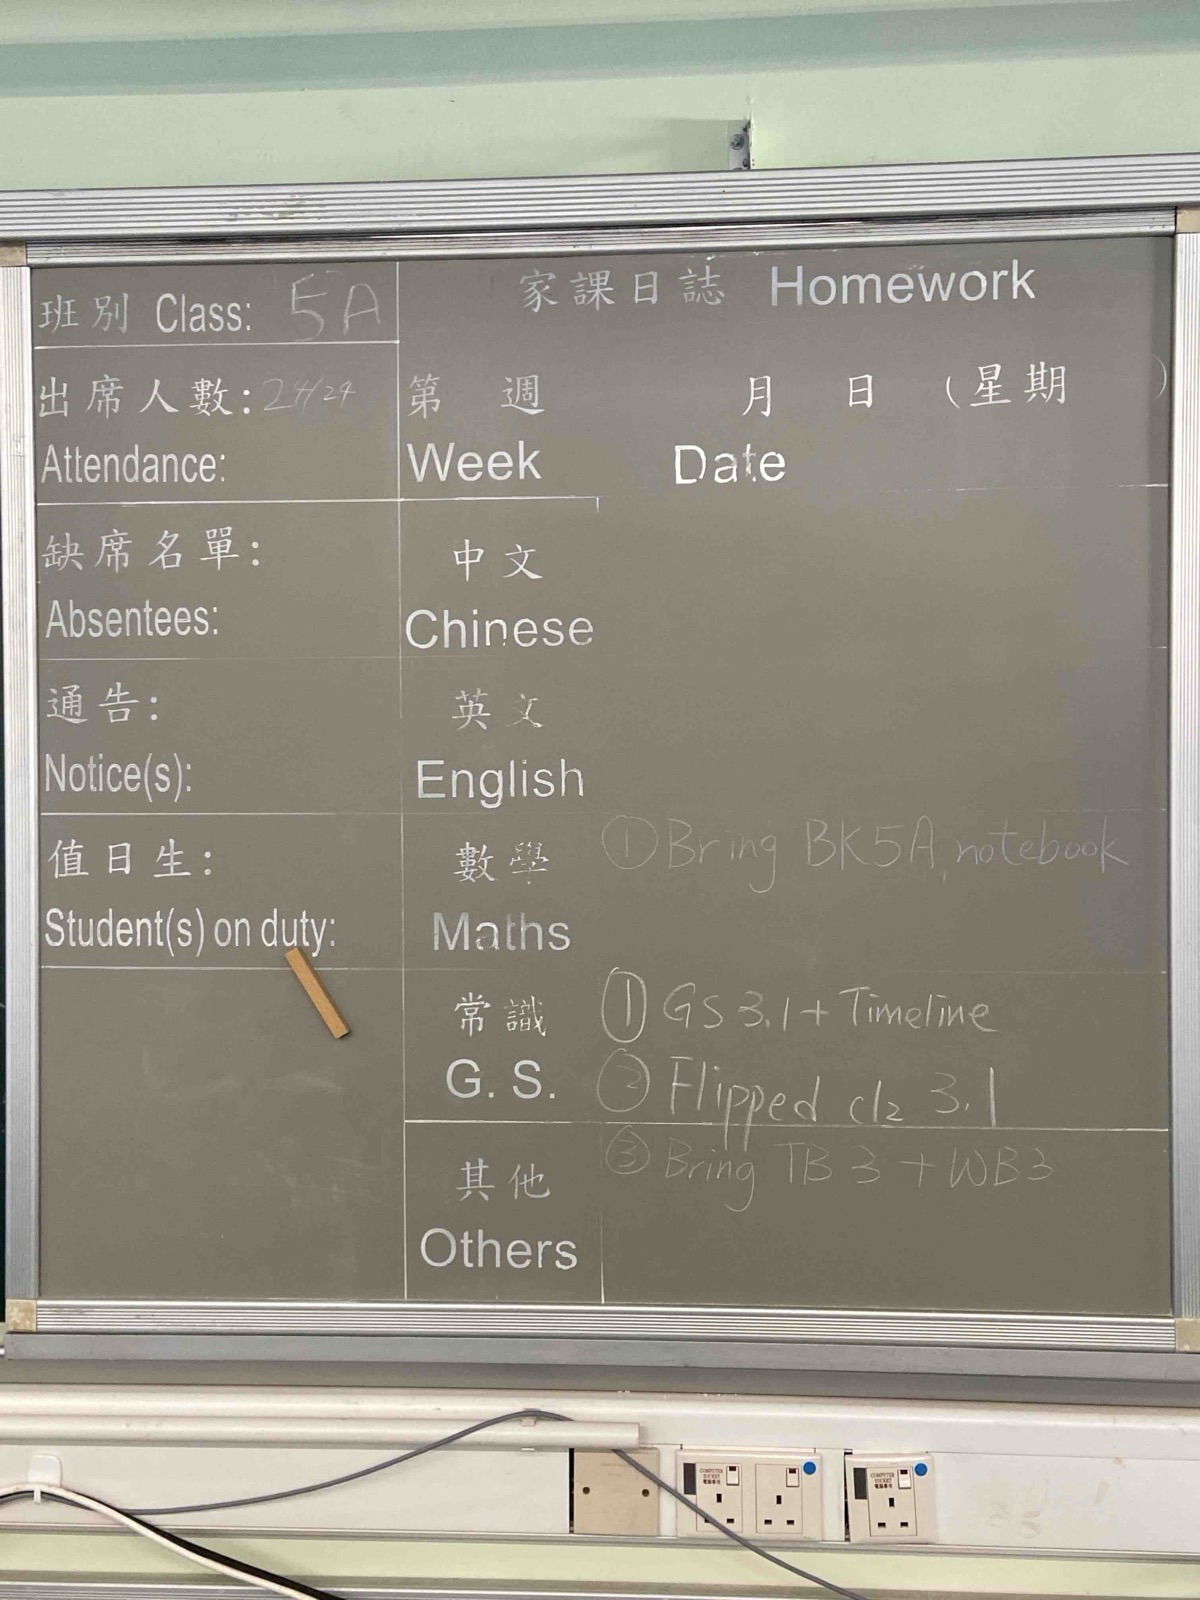 班別 Class: 5A
出席人數: 24/24
Attendance:
缺席名單:
Absentees:
通告:
Notice(s):
值日生:
Student(s) on duty:
家課日誌 Homework
第 週 月 日 (星期 )
Week Date
中文
Chinese
英文
English
數學 ① Bring BK5A, notebook
Maths
常識 ① GS 3.1 + Timeline
G. S. ② Flipped cls 3.1
③ Bring TB 3 + WB3
其他
Others
COMPUTER SOCKET
電腦專用
COMPUTER SOCKET
電腦專用